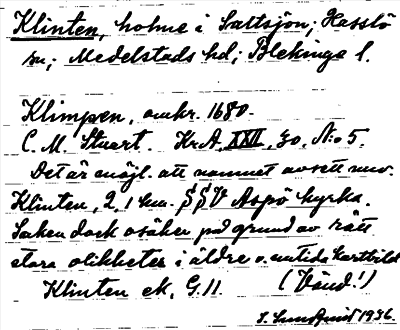 Klinten, holme i Saltsjön; Hasslö
sn; Medelstads hd; Blekinge l.
Klimpen, omkr. 1680.
C. M. Stuart. Kr.A. XXII, 30, N:o 5.
Det är möjl. att namnet avsett nuv.
Klinten, 2,1 km. SSV Aspö kyrka.
Saken dock osäker på grund av rätt
stora olikheter i äldre o. nutida kartbild
Klinten ek. G. 11. (Vänd!)
S. Sundquist 1936.